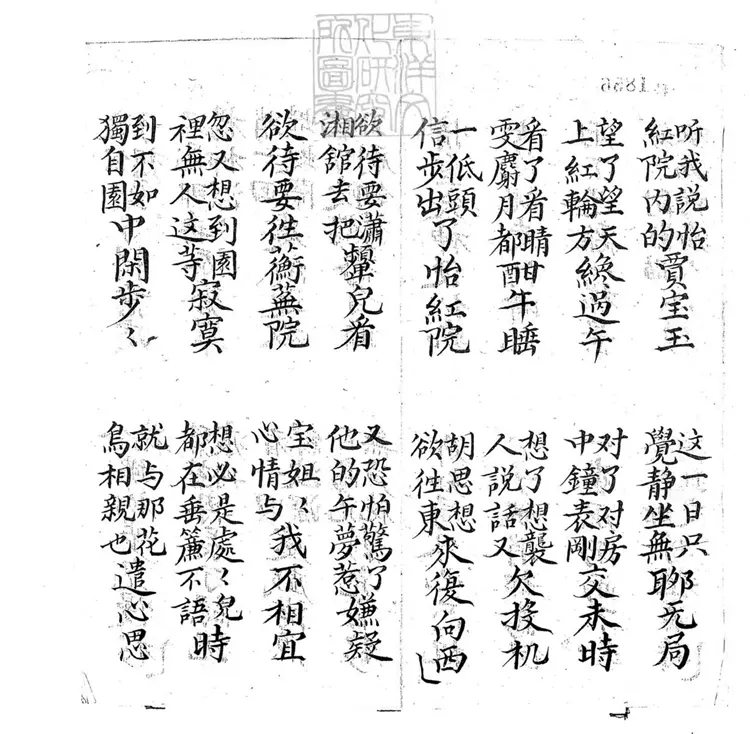 東洋文
化研究
所圖書
听我說怡紅院内的賈宝玉
这一日只覺静坐無聊无局
望了望天上紅輪方絶過午
对了对房中鐘表剛交未時
看了看晴雯麝月都酣午睡
想了想襲人說話又欠投机
一低頭信步出了怡紅院
胡思想欲徃東來復向西
欲待要瀟湘館去把颦兒看
又恐怕驚了他的午夢惹嫌疑
欲待要徃蘅蕪院
宝姐〻心情与我不相宜
忽又想到園裡無人这等寂寞
想必是處〻兒都在垂簾不語時
到不如獨自園中閑步〻
就与那花鳥相親也遣心思